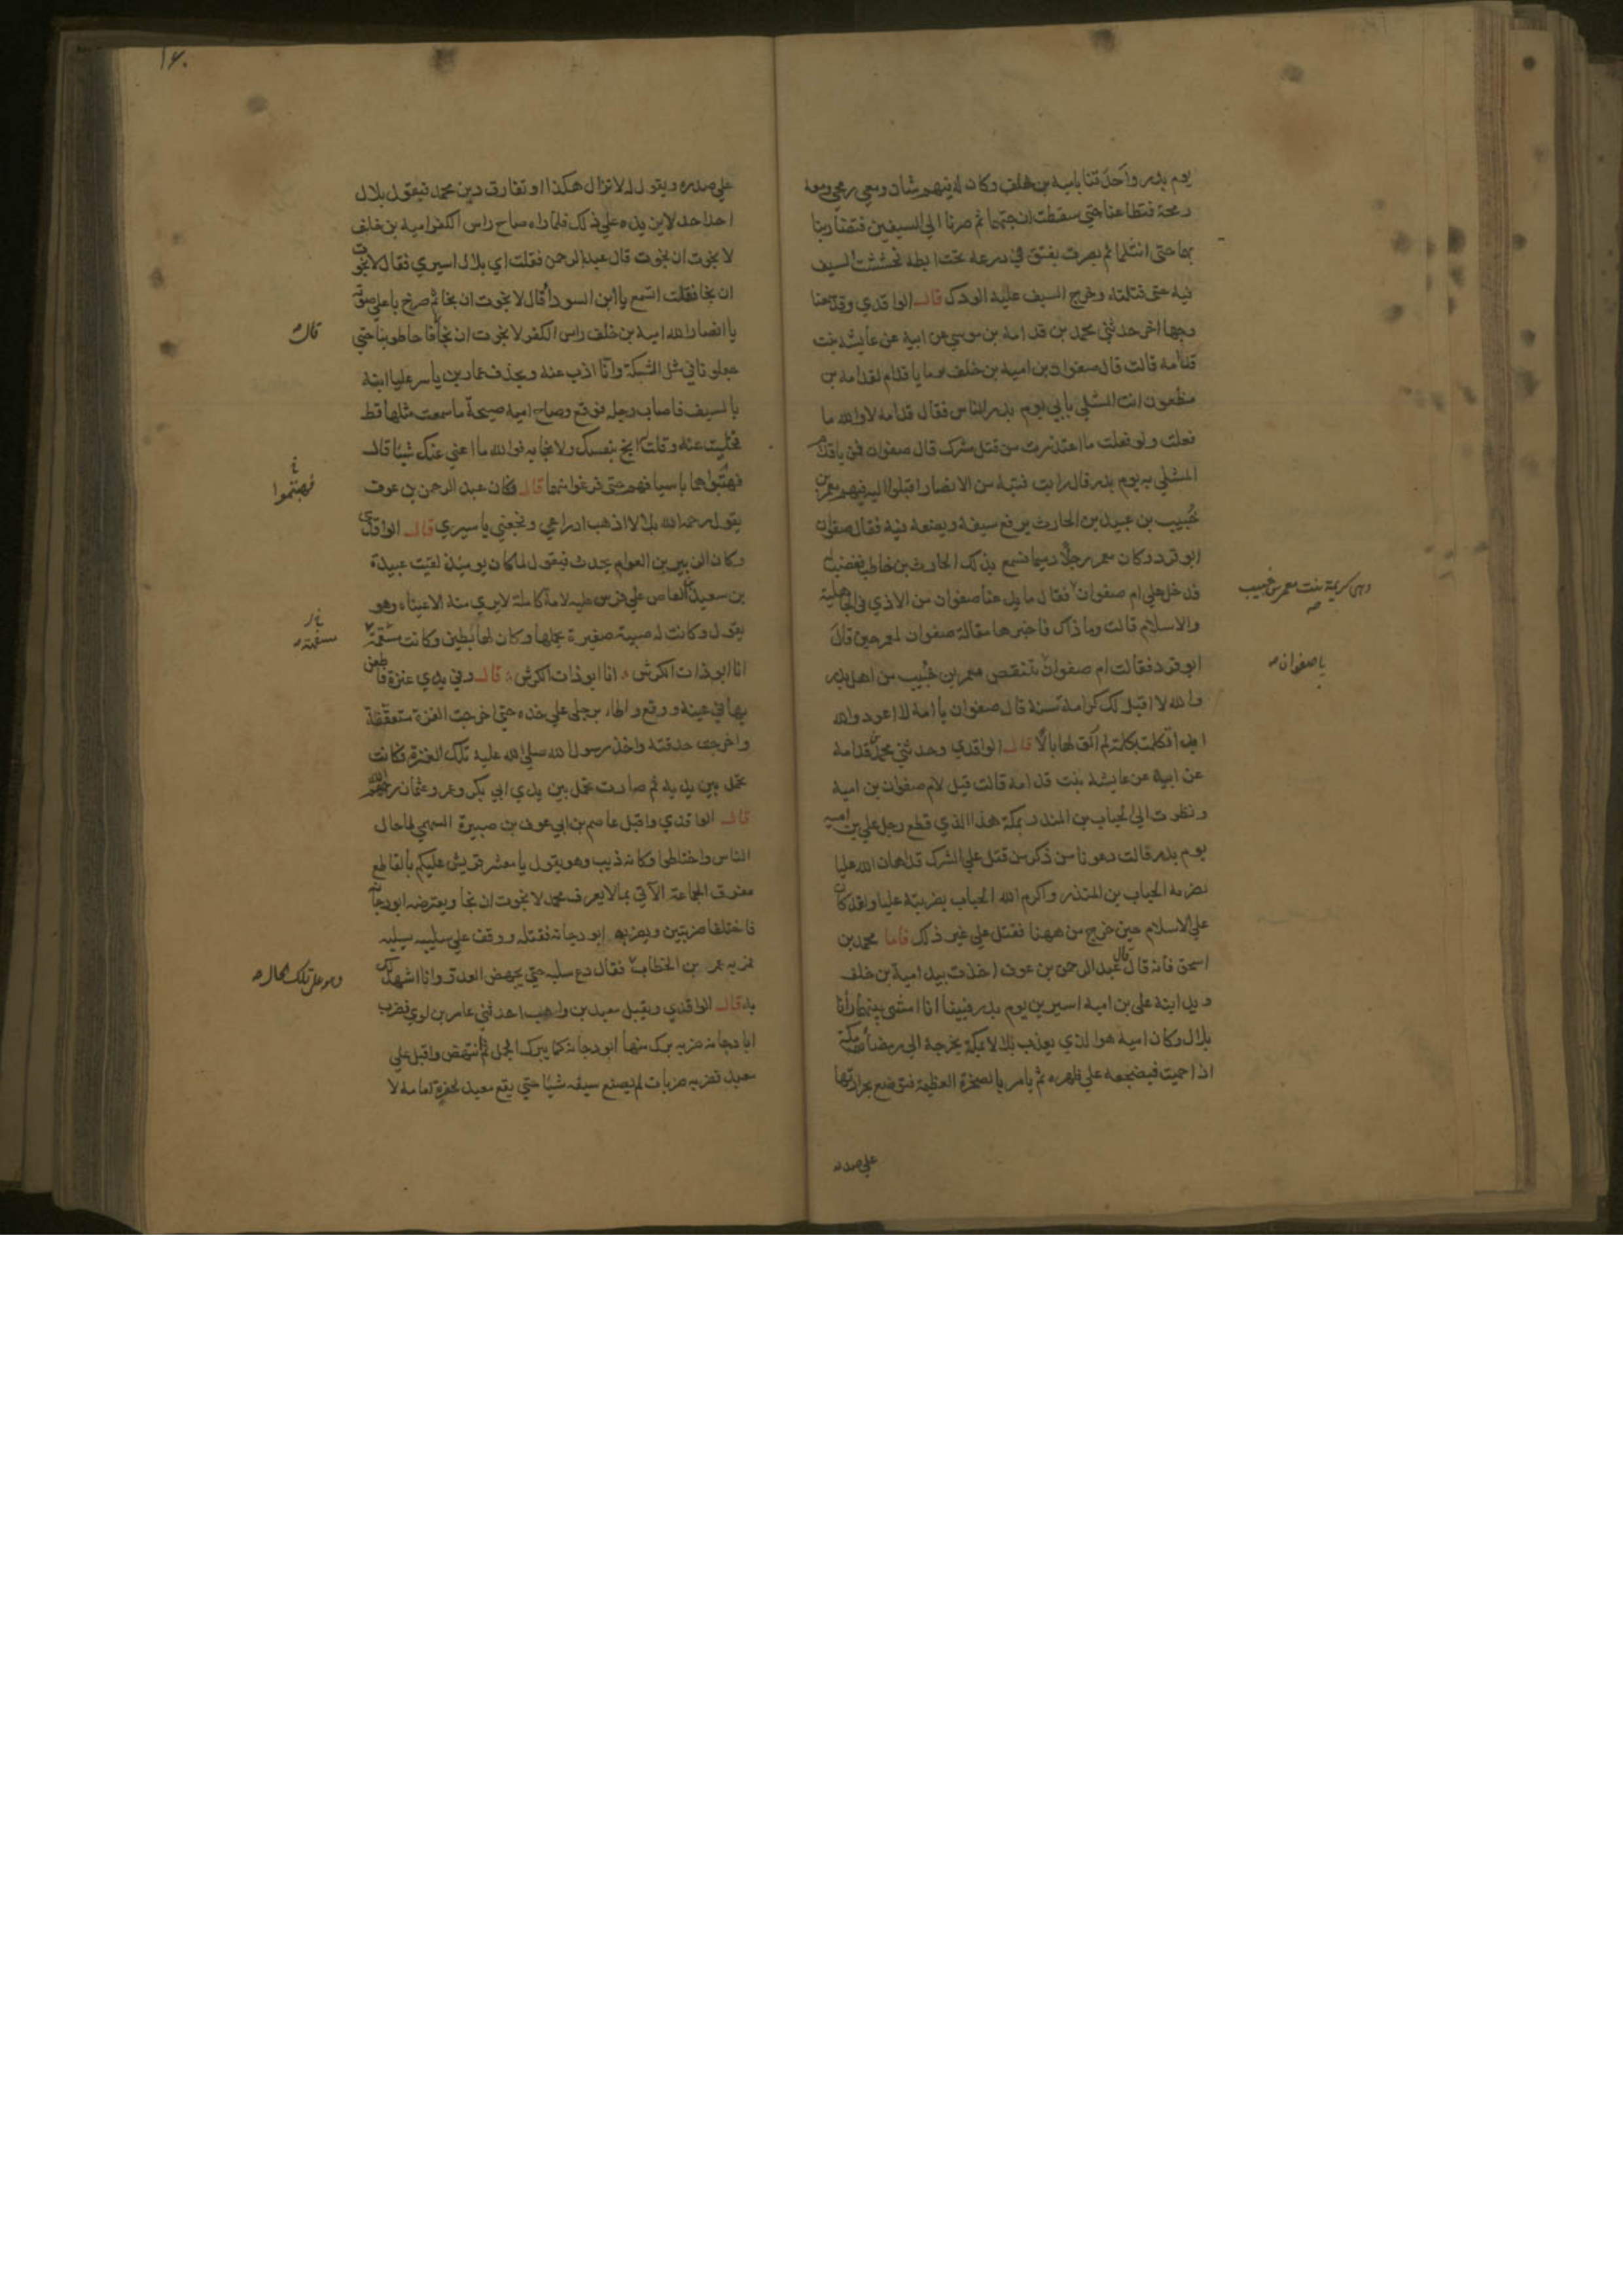 يوم بدر واحدقنا بامية بن خلف وكان له فيهم شان ومعي رمحي ومعه
رمحه فتطاعنا حتي سقطت ازجتهما ثم صرنا الي السيفين فتضاربنا
بهما حتى انثلما ثم بصرت بفتق في درعه تحت ابطه فخششت السيف
فيه حتى قتلته وخرج السيف عليه الودك قال الواقدي وقد سمعنا
وجها اخر حدثني محمد بن قدامة بن موسي عن ابيه عن عايشة بنت
قدامة قالت قال صفوان بن امية بن خلف يوما يا قدام لقدامة بن
مظعون انت المشلي بابي يوم بدر الناس فقال قدامة لا والله ما
فعلت ولو فعلت ما اعتذرت من قتل مشرك قال صفوان فمن يا قدام
المشلي به يوم بدر قال رايت فتية من الانصار اقبلوا اليه فيهم معمر بن
خُبيب بن عبيد بن الحارث يرفع سيفه ويضعه فيه فقال صفوان
ابو قرد وكان معمر رجلا دميما فسمع بذلك الحارث بن حاطب فغضب له
فدخل علي ام صفوان فقال ما يدعنا صفوان من الاذي في الجاهلية
وهي كريمة بنت معمر بن خبيب
والاسلام قالت وما ذاك فاخبرها مقالة صفوان لمعمر حين قال
ابو قرد فقالت ام صفوان تنتقص معمر بن خُبيب من اهل بدر
يا صفوان
والله لا اقبل لك كرامة سنة قال صفوان يا امه لا اعود والله
ابدا تكلمت بكلمة لم الق لها بالا قال الواقدي وحدثني محمد بن قدامة
عن ابيه عن عايشة بنت قدامة قالت قيل لام صفوان بن امية
ونظرت الي الحباب بن المنذر بمكة هذا الذي قطع رجل علي بن امية
يوم بدر قالت دعونا من ذكر من قتل علي الشرك قد اهان الله عليا
بضربة الحباب بن المنذر واكرم الله الحباب بضربته عليا ولقد كان
علي الاسلام حين خرج من ههنا فقتل علي غير ذلك فاما محمد بن
اسحق فانه قال قال عبد الرحمن بن عوف اخذت بيد امية بن خلف
وبيد ابنه على بن امية اسيرين يوم بدر فبينا انا امشي بينهما رانا
بلال وكان امية هو الذي يعذب بلالا بمكة يخرجه الى رمضا مكة
اذا حميت فيضجعه علي ظهره ثم يامر بالصخرة العظيمة فتوضع بحرارتها
علي صدره
١٦٠
علي صدره ويقول له لا تزال هكذا او تفارق دين محمد فيقول بلال
احد احد لا يزيده علي ذلك فلما راه صاح راس الكفر امية بن خلف
لا نجوت ان نجوت قال عبد الرحمن فقلت اي بلال اسيري فقال لا نجوت
ان نجا فقلت اتسمع يا ابن السوداء قال لا نجوت ان نجا ثم صرخ باعلي صوته
يا انصار الله امية بن خلف راس الكفر لا نجوت ان نجا فاحاطوا بنا حتي
قال
جعلونا في مثل المسكة وانا اذب عنه ويحذف عمار بن ياسر عليا ابنه
بالسيف فاصاب رجله فوقع وصاح امية صيحة ما سمعت مثلها قط
فخليت عنه وقلت انج بنفسك ولا نجا به فوالله ما اغني عنك شيئا قال
فهبتوهما باسيافهم حتى فرغوا منهما قال فكان عبد الرحمن بن عوف
يقول رحم الله بلالا اذهب ادراعي وفجعني باسيري قال الواقدي
وكان الزبير بن العوام يحدث فيقول لما كان يوميذ لقيت عبيدة
بن سعيد بن العاص علي فرس عليه لامة كاملة لا يري منه الا عيناه وهو
يقول وكانت له صبية صغيرة يحملها وكان لها بطين وكانت مسقمة
انا ابو ذات الكرش انا ابو ذات الكرش قال وفي يدي عنزة فاطعن
بها في عينه ووقع واطا برجلي علي خده حتي اخرجت العنزة متعقفة
واخرجت حدقته واخذ رسول الله صلي الله عليه تلك العنزة فكانت
تحمل بين يديه ثم صارت تحمل بين يدي ابي بكر وعمر وعثمان رحمهم الله
قال الواقدي واقبل عاصم بن ابي عوف بن صبيرة السهمي لما جال
الناس واختلطوا وكانه ذيب وهو يقول يا معشر قريش عليكم بالقاطع
مفرق الجماعة الآتي بما لا يعرف محمد لا نجوت ان نجا ويعترضه ابو دجانة
فاختلفا ضربتين ويضربه ابو دجانة فقتله ووقف علي سلبه يسلبه
فمر به عمر بن الخطاب فقال دع سلبه حتي يجهض العدو وانا اشهد لك
وهو علي تلك الحال
به قال الواقدي ويقبل معبد بن وهب احد بني عامر بن لوي فضرب
ابا دجانة ضربة برك منها ابو دجانة كما يبرك الجمل ثم انتهض واقبل علي
معبد فضربه ضربات لم يصنع سيفه شيئا حتي يقع معبد لحفرة امامه لا